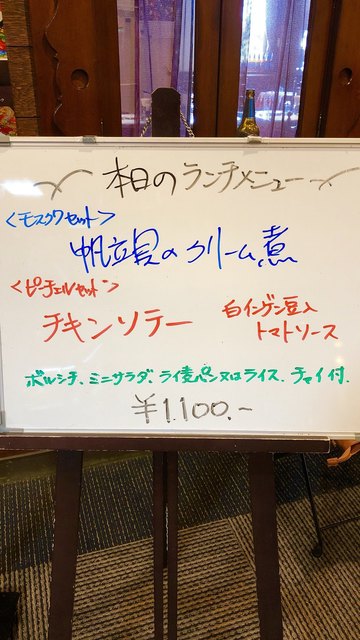 本日のランチメニュー
<モスクワセット>
帆立貝のクリーム煮
<ピーチェルセット>
チキンソテー 白インゲン豆入
トマトソース
ボルシチ、ミニサラダ、ライ麦パン又はライス、チャイ付.
¥1.100.-